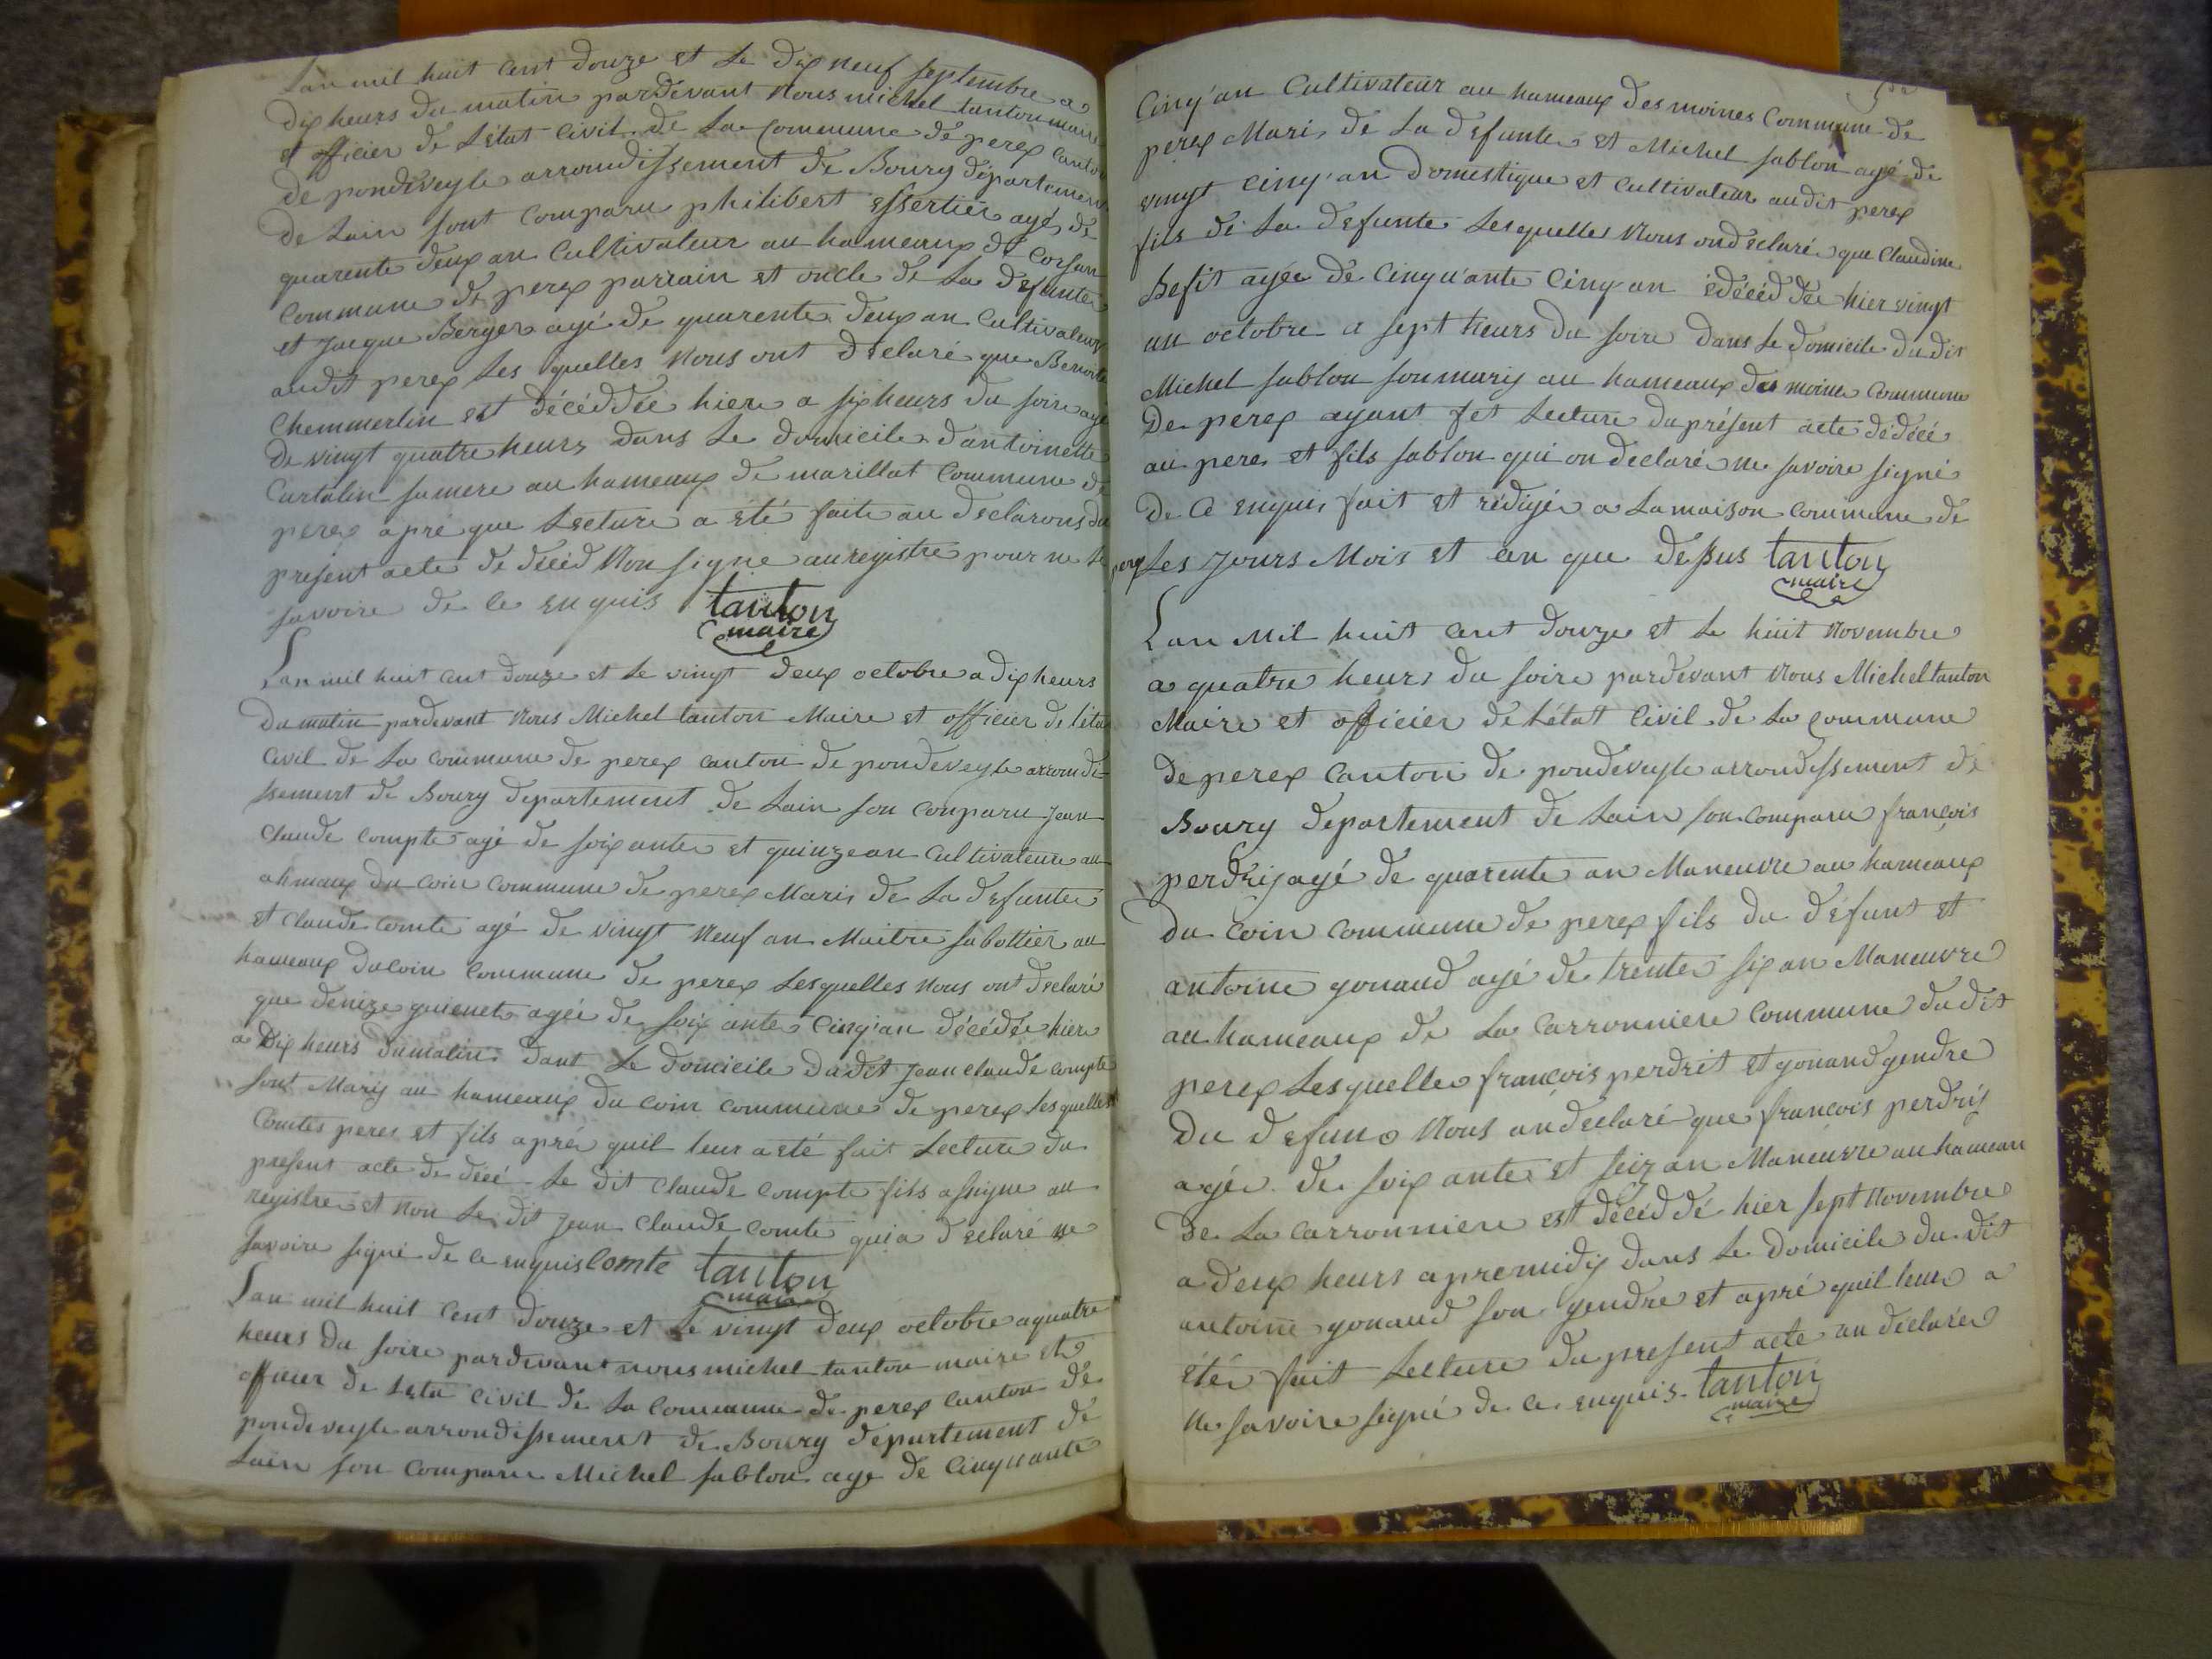 Lan mil huit cent douze et le dix neuf septembre a
dix heurs du matin pardevant nous michel tanton maire
et officier de létat civil de la commune de perex canton
de pondeveyle arrondissement de Bourg département
de lain sont comparu philibert Essertier agé de
quarente deux an cultivateur au hameaux de Corsan
commune de perex parrain et oncle de la défunte
et Jacque Berger agé de quarente deux an cultivateur
audit perex les quelles nous ont déclaré que Benoite
Chemmerlin est décéddée hiere a six heurs du soire agé
de vingt quatre heurs dans le domicile dantoinette
Curtalin sa mere au hameaux de marillat commune de
perex apré que lecture a été faite au déclarons du
present acte de décéd non signe au registre pour ne le
savoire de ce enquis tanton
maire
Lan mil huit cent douze et le vingt deux octobre a dix heurs
du matin pardevant nous Michel tanton Maire et officier de léta
civil de la commune de perex canton de pondeveyle arrondi
ssement de Bourg departement de lain son conparu jean
claude compte agé de soixante et quinze an cultivateur au
ahmaux du coin commune de perex Mari de la défunte
et claude comte agé de vingt neuf an Maitre sabottier au
hameaux du coin commune de perex lesquelles nous ont déclaré
que denize guienet agée de soixante cinq'an décédée hier
a dix heurs du matin dant le domicile dudit jean claude compte
sont Mary au hameaux du coin commune de perex lesquelles
Comtes peres et fils apré quil leur a été fait lecture du
present acte de décé le dit claude compte fils assigne au
registre et non le dit jean claude comte qui a déclaré ne
savoire signé de ce enquis Comte tanton
maire
Lan mil huit cent douze et le vingt deux octobre a quatre
heurs du soire pardevant nous michel tanton maire et
officier de léta civil de la commune de perex canton de
pondeveyle arrondissement de Bourg département de
lain son comparu Michel sablon age de cinquante
Cinq'an Cultivateur au hameaux des moines Commune de
perex Mari de la défunte et Michel sablon agé de
vingt cinq'an domestique et cultivateur audit perex
fils de la défunte lesquelles nous ondeclaré que Claudine
Befit agée de cinquante cinq an édécéddée hier vingt
un octobre a sept heurs du soire dans le domicile dudit
Michel sablon son mary au hameaux des moine commune
de perex ayant fet lecture du présent acte dédécé
au pere et fils sablon qui on declaré ne savoire signé
de ce enquis fait et rédigé a la maison commune de
perex les jours Mois et an que dessus tanton
maire
Lan Mil huit cent douze et le huit novembre
a quatre heurs du soire pardevant nous Michel tanton
Maire et officier de létat civil de la commune
de perex canton de pondeveyle arrondissement de
Bourg departement de lain son comparu françois
perdrij agé de quarente an Maneuvre au hameaux
du coin commune de perex fils du défunt et
antoine gonaud agé de trente six an Maneuvre
au hameaux de la carronniere commune dudit
perex lesquelles françois perdrit et gonaud gendre
du défun nous ondeclaré que françois perdrij
agée de soixante et seiz an Maneuvre au hameau
de la carronniere est décéddé hier sept novembre
a deux heurs apremidij dans le domicile du dit
antoine gonaud son gendre et apré quil leur a
été fait lecture du present acte an déclaré
ne savoire signé de ce enquis tanton
maire